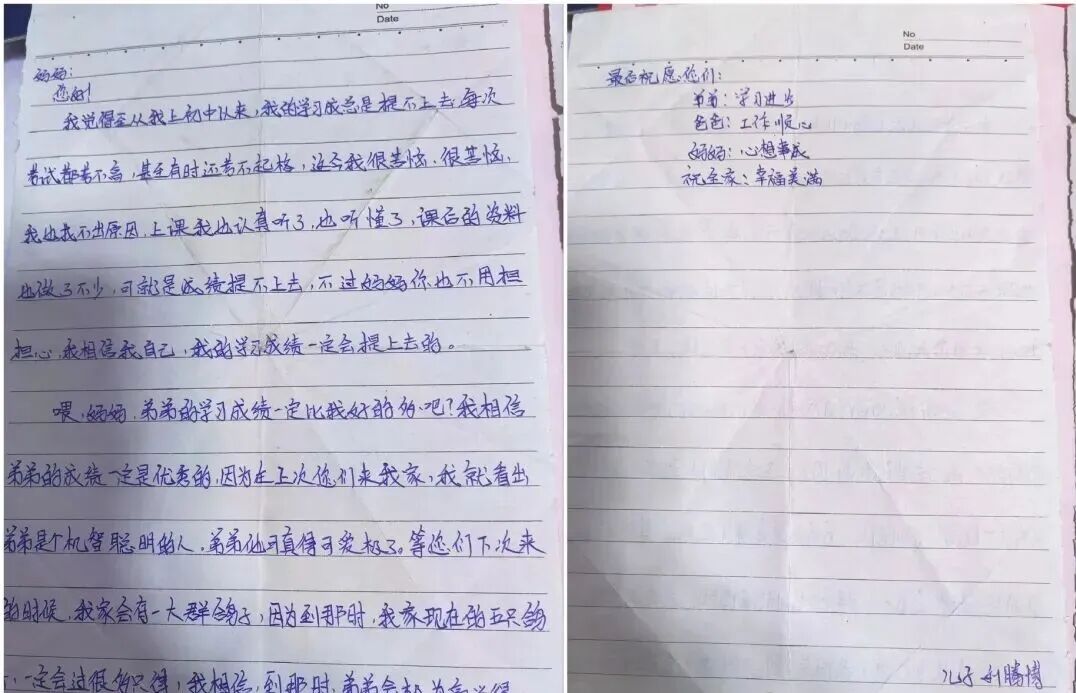 No
Date
妈妈:
您好!
我觉得至从我上初中以来,我的学习成总是提不上去,每次
考试都考不高,甚至有时还考不起格,这令我很苦恼、很苦恼,
我也找不出原因,上课我也认真听了,也听懂了,课后的资料
也做了不少,可就是成绩提不上去,不过妈妈你也不用担
担心,我相信我自己,我的学习成绩一定会提上去的。
喂,妈妈,弟弟的学习成绩一定比我好的多吧?我相信
弟弟的成绩一定是优秀的,因为在上次你们来我家,我就看出
弟弟是个机智聪明的人,弟弟他可真得可爱极了。等您们下次来
的时候,我家会有一大群鸽子,因为到那时,我家现在的五只鸽
一定会过很多只得,我相信,到那时,弟弟会
No
Date
最后祝愿你们:
弟弟:学习进步
爸爸:工作顺心
妈妈:心想事成
祝全家:幸福美满
儿子 腾博